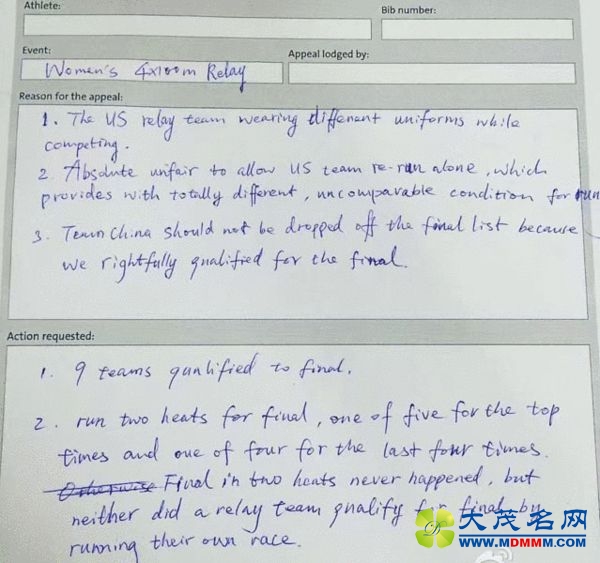 Athlete:
Bib number:
Event:
Appeal lodged by:
Women's 4x100m Relay
Reason for the appeal:
1. The US relay team wearing different uniforms while
competing.
2. Absolute unfair to allow US team re-run alone, which
provides with totally different, uncomparable condition for run
3. Team China should not be dropped off the final list because
we rightfully qualified for the final.
Action requested:
1. 9 teams qualified to final.
2. run two heats for final, one of five for the top
times and one of four for the last four times.
Otherwise Final in two heats never happened, but
neither did a relay team qualify for final by
running their own race.
大茂名网
WWW.MDMMM.COM